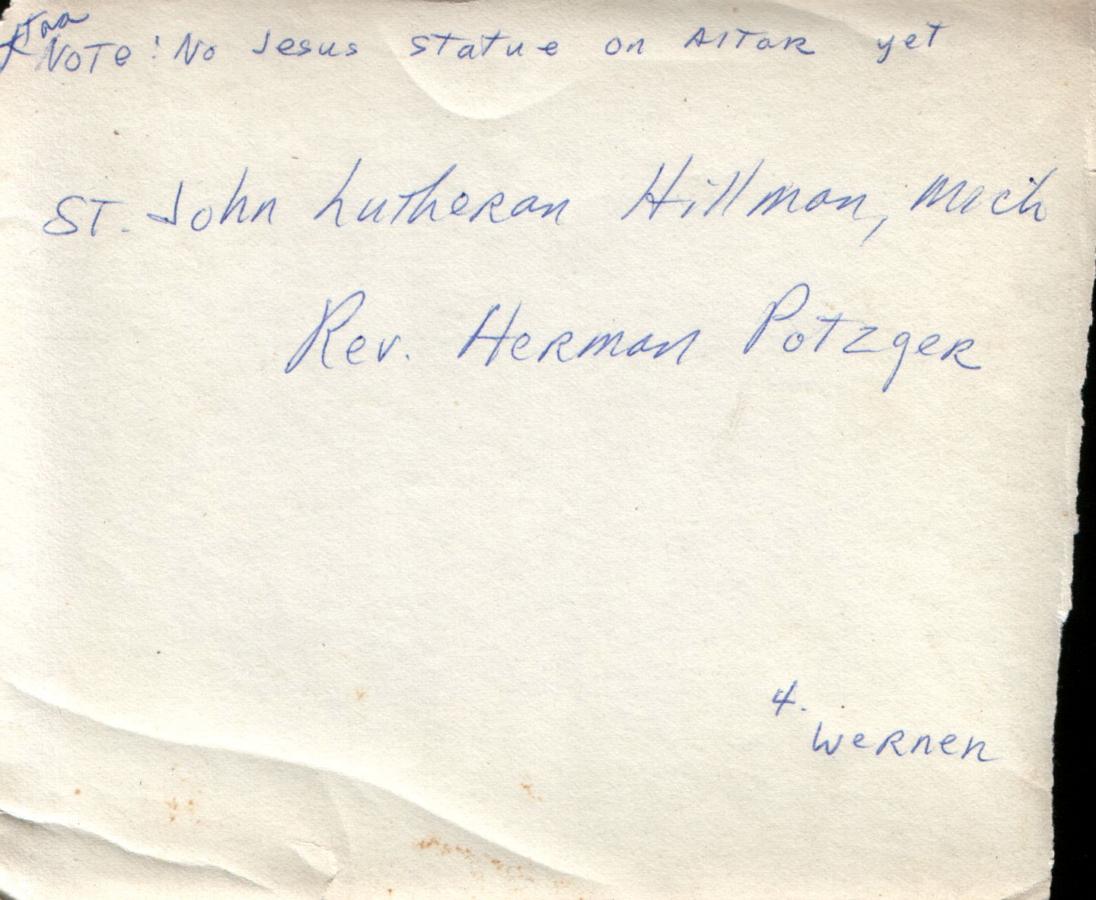 NOTE: No Jesus Statue on AlTAR yet
ST. John Lutheran Hillman, Mich
Rev. Herman Potzger
4.
Werner